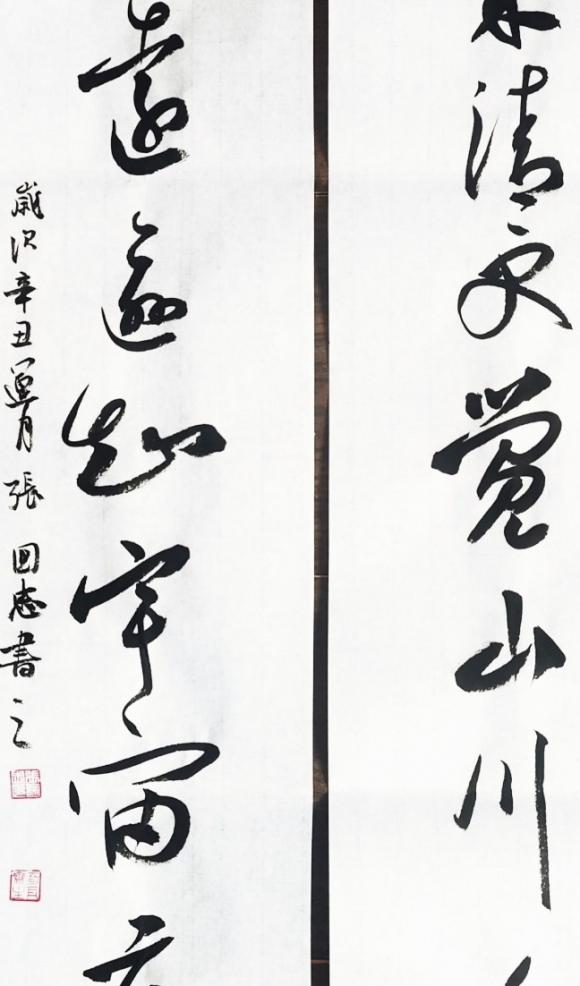 清更覺山川
遠愈知宇宙
歲次辛丑蓮月 張国志書之